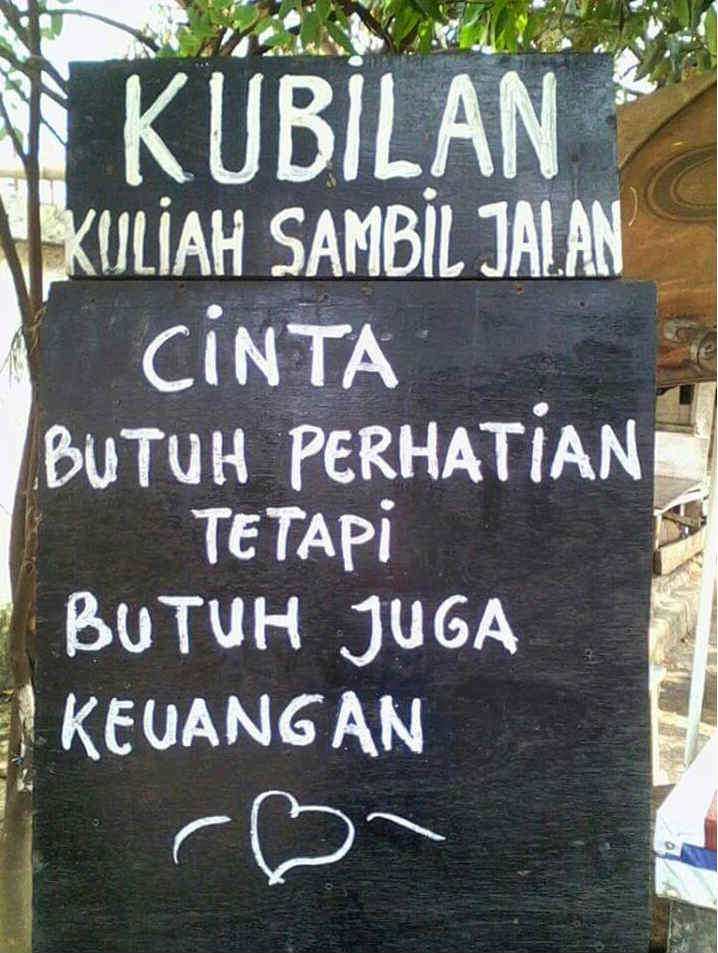 KUBiLAN
KULiAH SAMBiL JALAN
CiNTA
BUTUH PERHATiAN
TETAPi
BUTUH JUGA
KEUANGAN